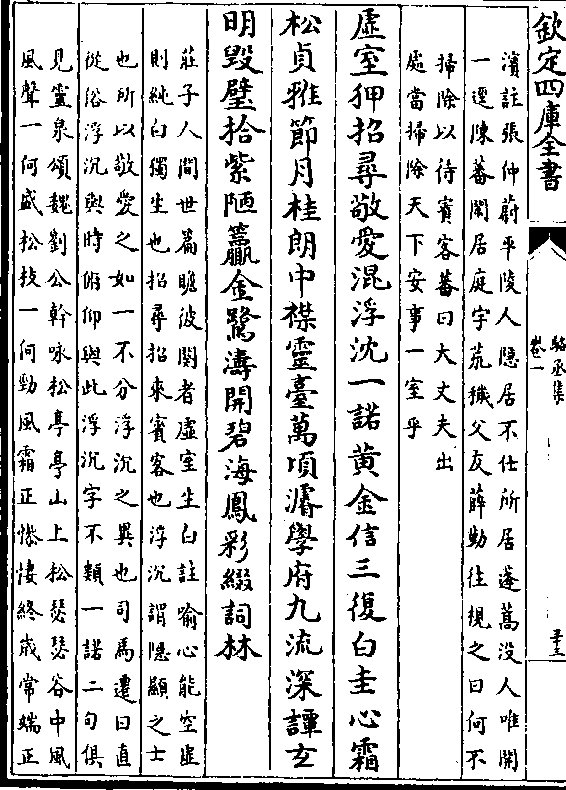 欽定四庫全書
駱丞集
卷一
濱註張仲蔚平陵人隱居不仕所居蓬蒿沒人唯開
一逕陳蕃閑居庭宇荒穢父友薛勤往視之曰何不
掃除以待賓客蕃曰大丈夫出
處當掃除天下安事一室乎
虛室狎招尋敬愛混浮沈一諾黄金信三復白圭心霜
松貞雅節月桂朗中襟靈臺萬頃濬學府九流深譚玄
明毁璧拾紫陋籯金鷺濤開碧海鳳彩綴詞林
莊子人間世篇瞻彼闋者虛室生白註喻心能空虛
則純白獨生也招尋招來賓客也浮沉謂隱顯之士
也所以敬愛之如一不分浮沉之異也司馬遷曰直
從俗浮沉與時俯仰與此浮沉字不類一諾二句俱
見靈泉頌魏劉公幹咏松亭亭山上松瑟瑟谷中風
風聲一何盛松枝一何勁風霜正慘悽終歲常端正